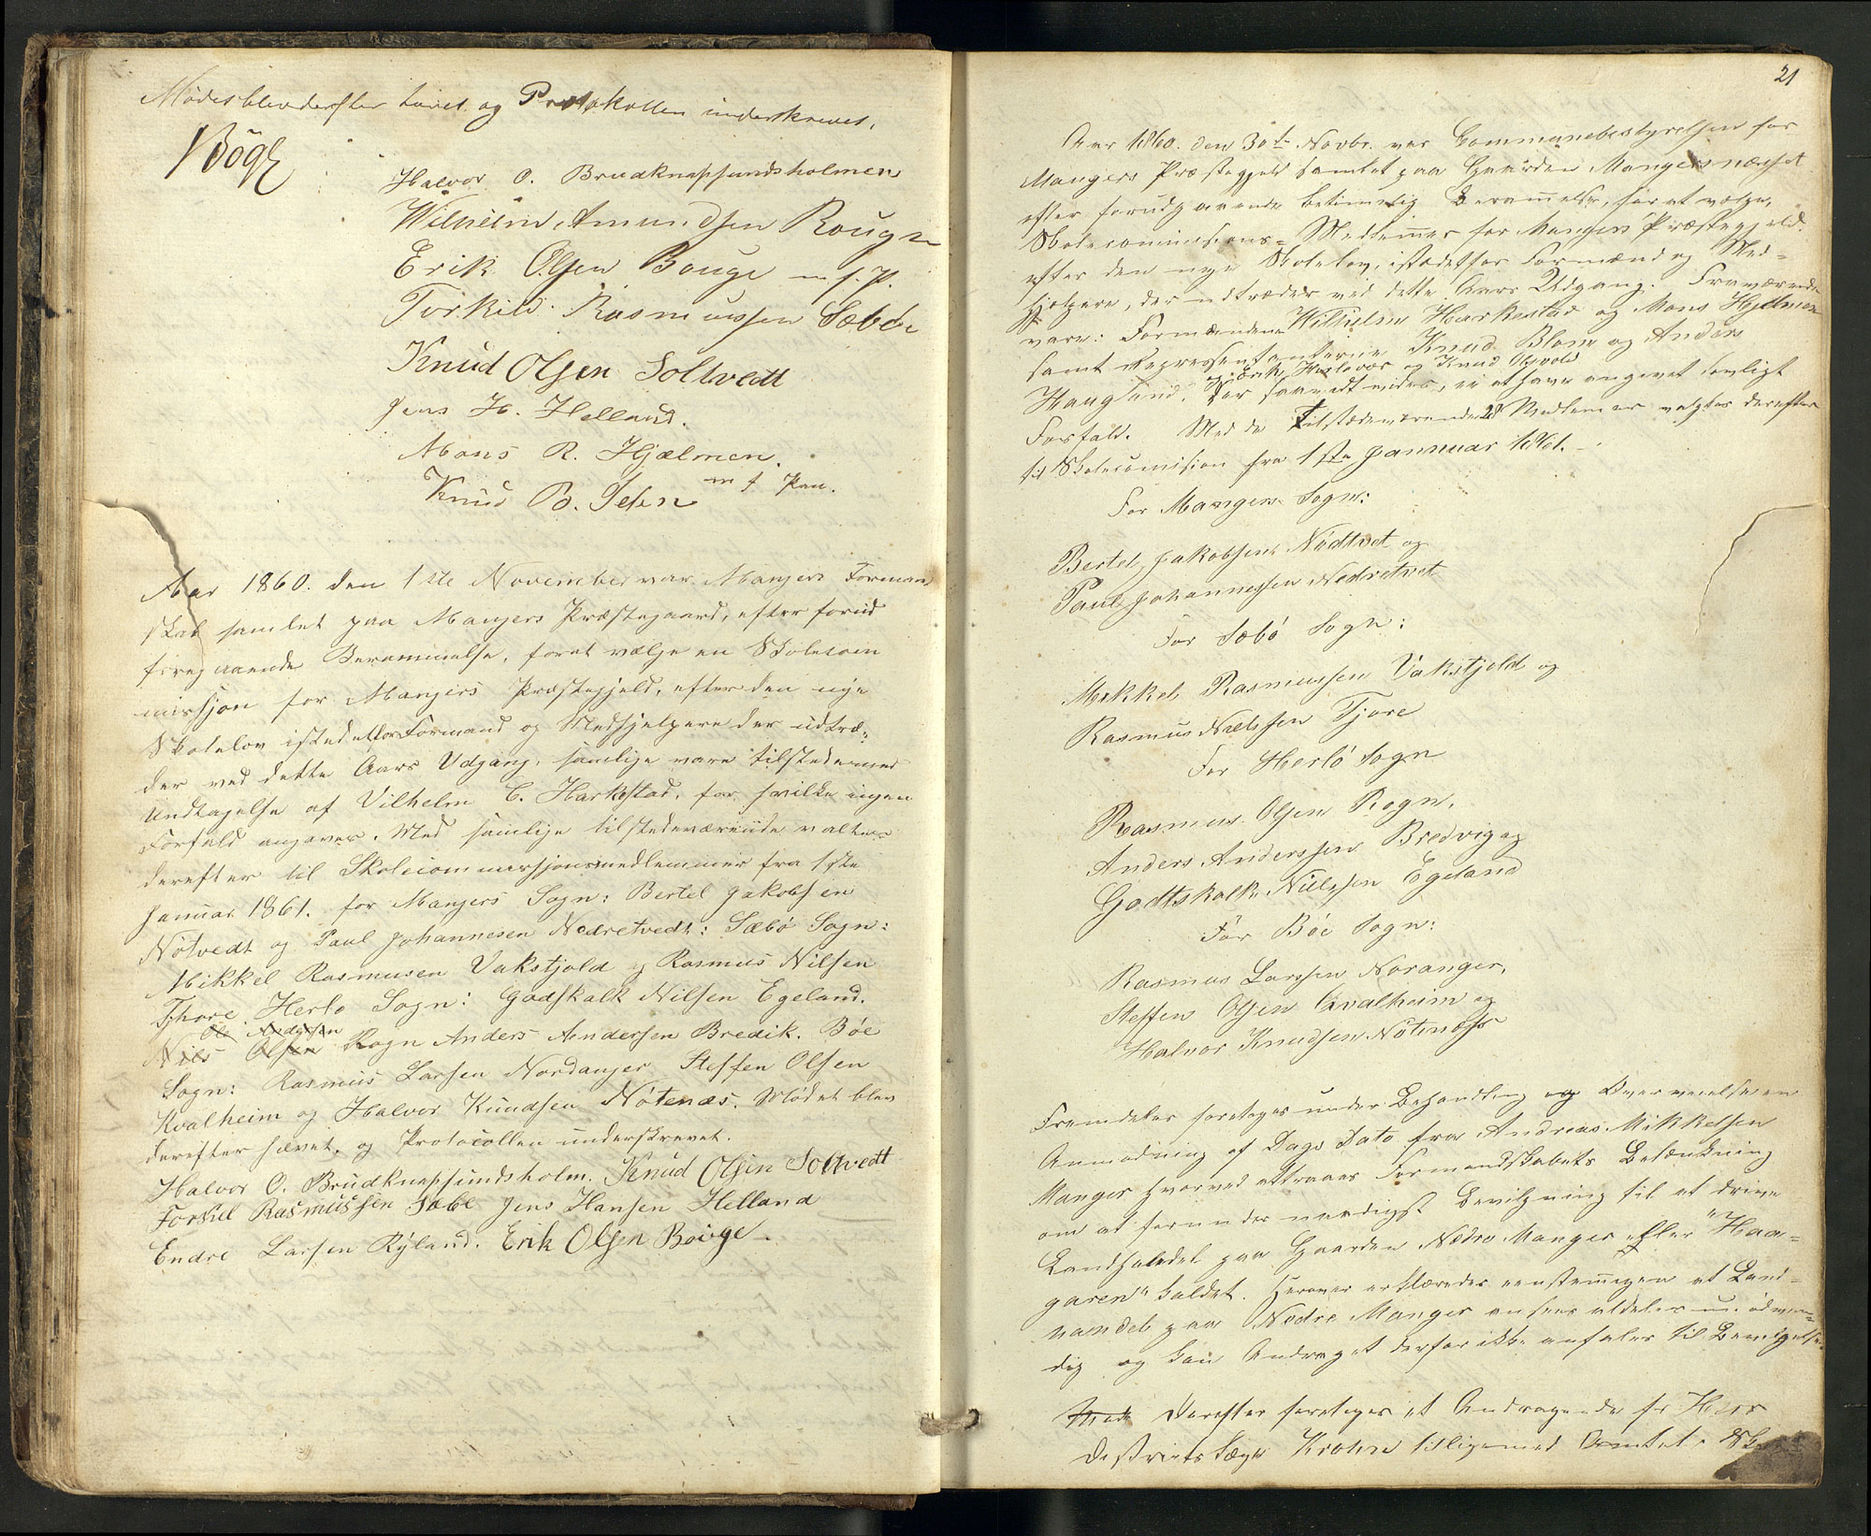 Mødes blev derefter hævet og Protokollen underskrevet.
Bögh
Halvor O. Brudknapsundsholmen
Wilhelm Amundsen Rougn
Erik Olsen Bouge m. f. P.
Torkild Rasmussen Sæböe
Knud Olsen Soltvedt
Jens H. Helland.
Mons R. Hjælmen.
Knud B. m f Pen.
Aar 1860. den 1ste November var Mangers Forman
skab samlet paa Mangers Præstegaard, efter forud
foregaaende Berammelse, foret vælge en Skolecom
missjon for Mangers Præstegjeld, efter den nye
Skolelov istedetfor Formand og Medhjelpere der udtræ-
der ved dette Aars Udgang, samlige vare tilstede med
Undtagelse af Vilhelm C. Harkestad, for hvilke ingen
Forfald angaves. Med samlige tilstedeværende valtes
derefter til Skolecommissjonsmedlemmer fra 1ste
Januar 1861. for Mangers Sogn: Bertel Jakobsen
Nötvedt og Paul Johannesen Nedretvedt: Sæbö Sogn:
Mikkel Rasmusen Vakstjold og Rasmus Nilsen
Tjhore Herlo Sogn: Godskalk Nilsen Egeland.
Ole Andersen
Nils Olsen Rogn Anders Andersen Bredik. Böe
Sogn: Rasmus Larsen Nordanger Steffen Olsen
Kvalheim og Halvor Knudsen Nötenæs. Mödet blev
derefter hævet, og Protocollen underskrevet.
Halvor O. Brudknapsundsholm. Knud Olsen Soltvedt
Torkel Rasmussen Sæbe Jens Hansen Helland
Endre Larsen Ryland. Erik Olsen Bouge.
21
Aar 1860. den 30te Novbr. var Communebestyrelsen for
Mangers Præstegjeld samlet paa Gaarden Mangersnæset
efter forudgaaende betimelig Berammelse, for at vælge,
Skolecommissions-Medlemmer for Mangers Præstegjeld.
efter den nye Skolelov, istedetfor Formænd og Med-
hjelpere, der udtræder ved dette Aars Udgang. Fraværende
vare: Formændene Wilhelm Harkestad og Mons Hjelmen
samt Repressentanterne Knud Blom og Anders
Erik Herlevær og Knud Olsvold
Haugland. For saavidt vides, er at have angivet lovligt
Forfald. Med de tilstedeværende Medlemer valgtes derefter
til Skolecomision fra 1ste Januuar 1861.
For Mangers Sogn:
Bertel Jakobsen Nödtvet og
Paul Johannessen Nedretvet
For Sæbö Sogn:
Mikkel Rasmussen Vakstjold og
Rasmus Nielsen Tjore
For Herlö Sogn
Rasmus Olsen Rogn,
Anders Anderssen Bredvig og
Godtskalk Nielsen Egeland
For Böe Sogn:
Rasmus Larssen Noranger,
Steffen Olsen Qvalheim og
Halvor Knudsen Nötenæss
Fremdeles foretoges under Behandling og Overveielse en
Anmodning af Dags Dato fra Andreas Mikkelsen
Manger hvorved attraaes Formandskabets Betænkning
om at forundes naadigst Bevilgning til at drive
Landhandel paa Gaarden Nedre Manger eller "Haa-
garen" kaldet. Herover erklæredes eenstemmigen at Land-
handel paa Nedre Manger ansees aldeles unödven-
dig og kan Andraget derfor ikke anfales til Bevilgelse.
Med Derefter foretoges et Andragende fr Herr
Destricts Læge Krohn tilligemed Amtets